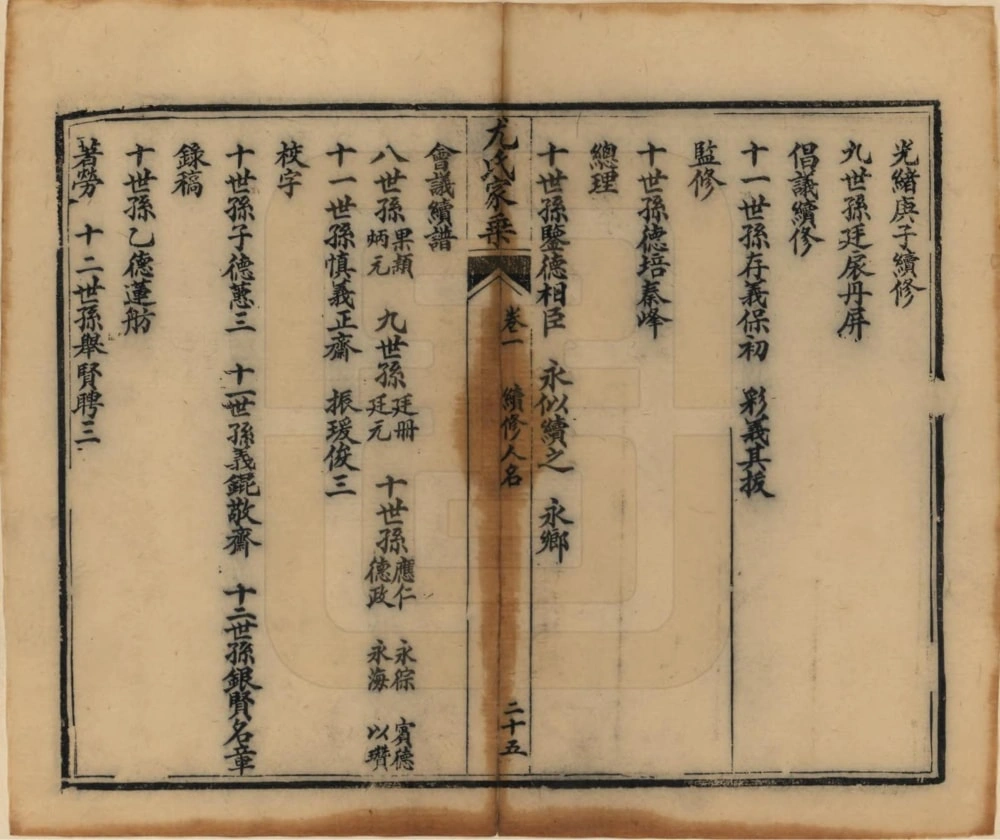 光緒庚子續修
九世孫廷扆丹屏
倡議續修
十一世孫存義保初　彩義其拔
監修
十世孫德培秦峰
總理
十世孫鑒德相臣　永似續之　永鄉
尤氏家乘　卷一　續修人名　二十五
會議續譜
八世孫果顯炳元　九世孫廷冊廷元　十世孫應仁德政　永琮永海　賓德以瓚
十一世孫慎義正齋　振瑗俊三
校字
十世孫子德蕙三　十一世孫義錕敬齋　十二世孫銀賢名章
錄稿
十世孫乙德蓮舫
著勞　十二世孫舉賢聘三